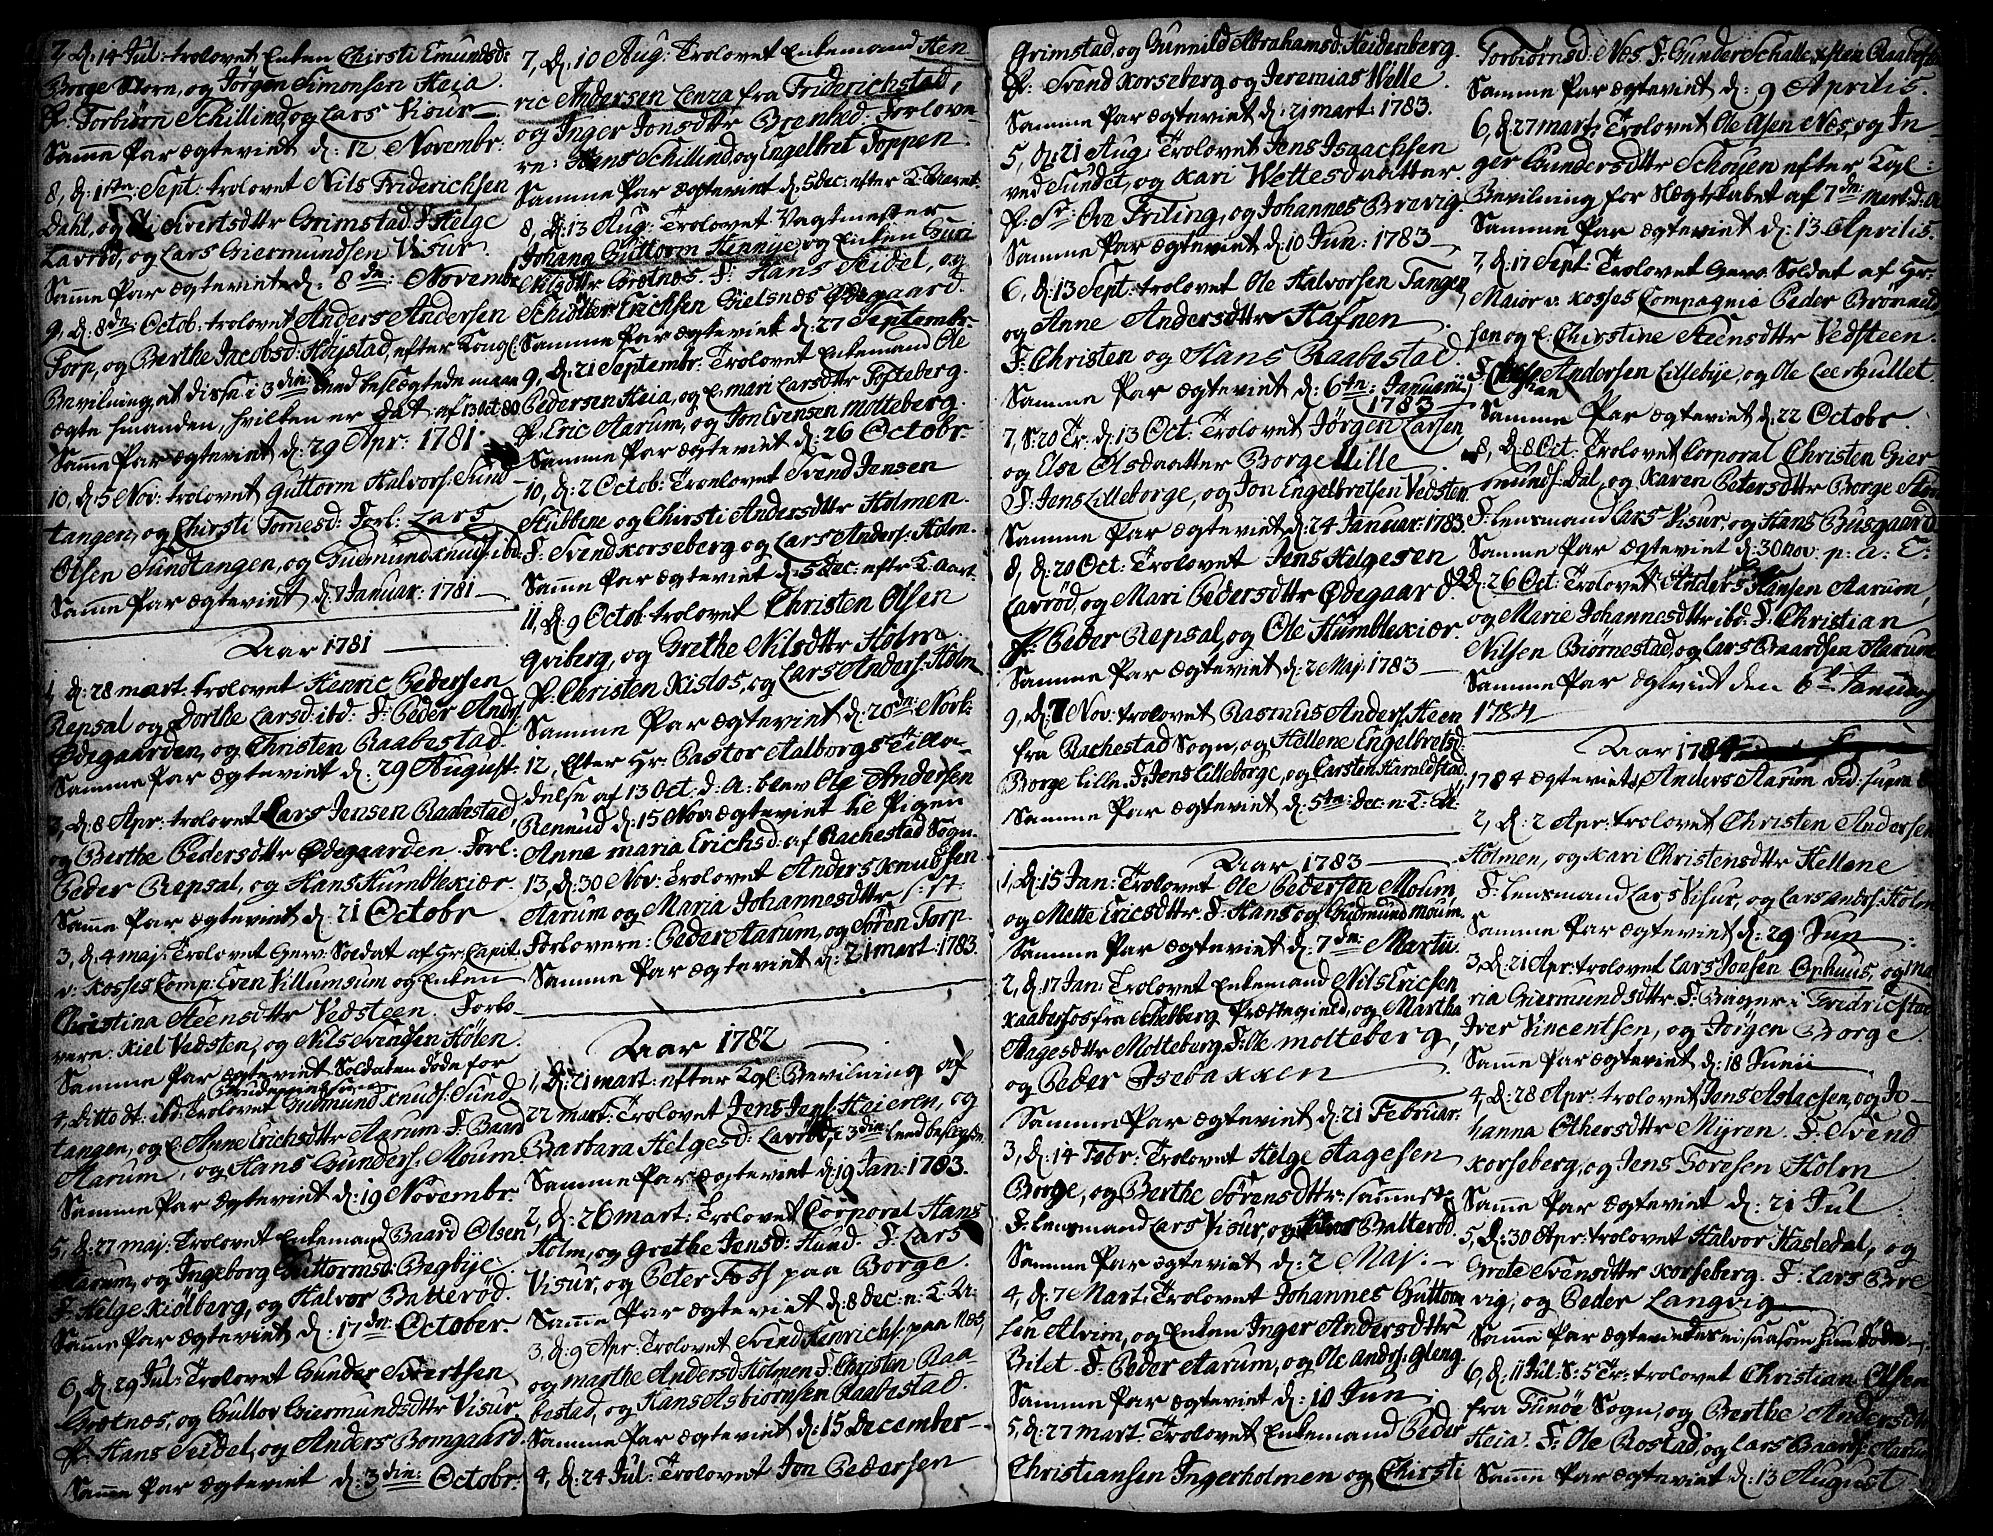 7, d: 14 Jul: trolovet Enken Chirsti Emundsd:
Borge Storn, og Jörgen Simonsen Heia.
F: Torbiörn Schillind, og Lars Visur
Samme Par ægteviet d: 12 Novembr:
8, d: 1ste Sept: trolovet Nils Friderichsen
Dahl, og Sivertsdttr Grimstad. F: Helge
Lavröd, og Lars Giermundsen Visur.
Samme Par ægteviet d: 8de: Novembr
9, d: 8de Octob: trolovet Anders Andersen
Torp, og Berthe Jacobsd: Höystad, efter Kongl:
Bevilning, at disse i 3die Leed beslegtede maae
ægte hinanden, hvilken er dat: af 13 Oct: 80
Samme Par ægteviet d: 29 Apr: 1781
10, d: 5 Nov: trolovet Guttorm Halvors: Sund
tangen, og Chirsti Tornesd: Forl: Lars
Olsen Sundtangen, og Gudmund Knuds: ibd:
Samme Par ægteviet d: 7 Januar: 1781
Aar 1781
1, d: 28 mart: trolovet Henric Pedersen
Repsal og Dorthe Larsd: ibd: F: Peder Andr:
Ödegaarden, og Christen Raabestad.
Samme Par ægteviet d: 29 August:
3, d: 8 Apr: trolovet Lars Jensen Raabestad,
og Berthe Pedersdttr Ödegaarden. Forl:
Peder Repsal, og Hans Humblekiær.
Samme Par ægteviet d: 21 Octobr
3, d: 4 maj: Trolovet Gerv: Soldat af Hr: Capit
v: Kosses Comp: Even Villumsum og Enken
Christina Steensdttr Vedsteen. Forlo
vere: Kiel Vedsten, og Nils Svendsen Hölen.
Samme Par ægteviet Soldaten döde for
4, Ditto dt: ibd: Trolovet Gudmund Knuds: Sund
tangen, og E: Anne Erichsdttr Aarum F: Baard
Aarum, og Hans Gunders: Moum.
Samme Par ægteviet d: 19 Novembr.
5, d: 27 maj: Trolovet Enkemand Baard Olsen
Aarum, og Ingeborg Guttormsd: Begbije.
F: Helge Kiölberg, og Halvor Batteröd.
Samme Par ægteviet d: 17de: October.
6, d: 29 Jul: Trolovet Gunder Sivertsen
Grötnes, og Gullov Giermundsdttr Visur
F: Hans Seidel, og Anders Bomgaard.
Samme Par ægteviet d: 3die: Octobr:
7, d: 10 Aug: Trolovet Enkemand Hen-
ric Andersen Lenza fra Friderichstad,
og Inger Jonsdttr Brenhed: Forlove
re: Hans Schillind, og Engelbret Toppen.
Samme Par ægteviet d: 5 Dec: efter K: Aaret
8, d: 13 Aug: Trolovet Vagtmester
Johans Guttorm Hennye og Enken Guri
Nilsdttr Grötnes F: Hans Seidel, og
Schiötter Erichsen Gielsnes Ödegaard.
Samme Par ægteviet d: 27 Septembr.
9, d: 21 Septembr: Trolovet Enkemand Ole
Pedersen Heia, og E: mari Larsdttr Tofteberg.
F: Eric Aarum, og Jon Evensen Molteberg.
Samme Par ægteviet d: 26 Octobr:
10, d: 2 Octob: Trolovet Svend Jensen
Stubbene og Chirsti Andersdttr Holmen.
F: Svend Korseberg og Lars Anders: Holm.
Samme Par ægteviet d: 5 Dec: eftr K: Aart.
11, d: 9 Octob: trolovet Christen Olsen
Qviberg, og Grethe Nilsdttr Holm
F: Christen Kislos, og Lars Anders: Holm
Samme Par ægteviet d: 20de Novb:
12, Efter Hr: Pastor Aalborgs Tilla-
delse af 13 Oct: d: A: blev Ole Andersen
Reneud d: 15 Nov: ægteviet til Pigen
Anne maria Erichsd: af Rachestad Sogn.
13, d: 30 Nov: Trolovet Anders Knudsen
Aarum og Maria Johannesdttr s: st:
Forlovere: Peder Aarum, og Sören Torp
Samme Par ægteviet d: 21 mart: 1783.
Aar 1782
1, d: 21 mart: efter Kgl: Bevilning af
22 mart: Trolovet Jens Jens: Haieren, og
Barbara Helgesd: Lavröd, i 3die: Leed beslegtede
Samme Par ægteviet d: 19 Jan: 1783.
2, d: 26 mart: Trolovet Corporal Hans
Holm, og Grethe Jensd: Hund. F: Lars
Visur, og Peter Foss paa Borge.
Samme Par ægteviet d: 8 Dec: n: K: A:
3, d: 9 Apr: Trolovet Svend Henrichs: paa Nes,
og marthe Andersd: Holmen F: Christen Raa-
bestad, og Hans Asbiörnsen Raabestad.
Samme Par ægteviet d: 15 December
4, d: 24 Jul: Trolovet Jon Pedersen
Grimstad og Gunnild Abrahamsd: Heidenberg.
F: Svend Korseberg og Jeremias Welle.
Samme Par ægteviet d: 21 mart: 1783.
5, d: 21 Aug: Trolovet Jens Isaachsen
ved Sundet, og Kari Wettesdaatter.
F: Sr: Ove Friling, og Johannes Brevig.
Samme Par ægteviet d: 10 Jun: 1783
6, d: 13 Sept: trolovet Ole Halvorsen Tangen,
og Anne Andersdttr Hafnen
F: Christen og Hans Raabestad
Samme Par ægteviet d: 6te: Januarii
1783
7, S: 20 Tr: d: 13 Oct: Trolovet Jörgen Larsen,
og Else Olsdaatter Borge Lille
F: Jens Lilleborge, og Jon Engelbretsen Vedsten.
Samme Par ægteviet d: 24 Januar: 1783.
8, d: 20 Oct: Trolovet Jens Helgesen
Lavröd, og Mari Pedersdttr Ödegaard.
F: Peder Repsal, og Ole Humblekiær.
Samme Par ægteviet d: 2 Maj: 1783
9, d: 7 Nov: trolovet Rasmus Anders: Heen
fra Rachestad Sogn, og Hellene Engelbretsd:
Borge Lille F: Jens Lilleborge, og Carsten Haraldstad.
Samme Par ægteviet d: 5te: Dec: n: K: A:
Aar 1783
1, d: 15 Jan: Trolovet Ole Pedersen Moum,
og Mette Ericsdttr F: Hans og Gudmund Moum.
Samme Par ægteviet d: 7de: Martii
2, d: 17 Jan: Trolovet Enkemand Nils Ericsen
Kaabersos fra Schebberg Præstegield, og Martha
Aagesdttr Molteberg. F: Ole molteberg,
og Peder Isebakken
Samme Par ægteviet d: 21 Februar:
3, d: 14 Febr: Trolovet Helge Aagesen
Borge, og Berthe Sörensdttr: sammest:
F: Lensmand Lars Visur, og Halvor Batteröd.
Samme Par ægteviet d: 2 Maj:
4, d: 7 Mart: Trolovet Johannes Guttorm
sen Alvim, og Enken Inger Andersdttr
Bilet. F: Peder Aarum, og Ole Andrs: Gleng.
Samme Par ægteviet d: 10 Jun:
5, d: 27 mart: Trolovet Enkemand Peder
Christiansen Ingerholmen og Chirsti
Torbiörnsd: Nes F: Gunder Schalle, Christen Raabestad
Samme Par ægteviet d: 9 Aprilis.
6, d: 27 mart: Trolovet Ole Olsen Nes, og In-
ger Gundersdttr Schoyen efter Kgl:
Bevilning for Slegtskabet af 7de mart: d: A
Samme Par ægteviet d: 13 Aprilis.
7, d: 17 Sept: Trolovet Gerv: Soldat af Hr:
Maior v: Kosses Compagnie Peder Brönni
sen og E: Chirstine Steensdttr Vedsteen.
F: Andersen Lillebije, og Ole Leerhullet
Samme Par ægteviet d: 22 Octobr.
8, d: 8 Oct: Trolovet Corporal Christen Gier
munds: Dal, og Karen Petersdttr Borge Stor
F: Lensmand Lars Visur, og Hans Busgaard
Samme Par ægteviet d: 30 nov: p: a: E:
9, d: 26 Oct: Trolovet Anders Hansen Aarum,
og Marie Johannesdttr ibd: F: Christian
Nilsen Biörnestad, og Lars Baardsen Aarum
Samme Par ægteviet den 6te Januarij
1784
Aar 1784
1784 ægteviet Anders Aarum vid: supra
2, d: 2 Apr: trolovet Christen Andersen
Holmen, og Kari Christensdttr Hellene
F: Lensmand Lars Visur, og Lars Anders: Holm
Samme Par ægteviet d: 29 Jun
3, d: 21 Apr: trolovet Lars Jonsen Ophuus, og Ma
ria Giermundsdttr F: Bager i Fredricstad
Iver Vincentsen, og Jörgen Borge
Samme Par ægteviet d: 18 Junii
4, d: 28 Apr: trolovet Jens Aslachsen, og Jo
hanna Othersdttr Myren. F: Svend
Korseberg, og Jens Toresen Holm
Samme Par ægteviet d: 21 Jul
5, d: 30 Apr: trolovet Halvor Hasledal, og
Grete Svensdttr Korseberg. F: Lars Bre
vig, og Peder Langvig
Samme Par ægteviedes ei, saasom hun döde
6, d: 11 Jul: S: 5 Tr: trolovet Christian Olsen
fra Tunöe Sogn, og Berthe Andersdttr
Heia: F: Ole Rostad, og Lars Baards: Aarum
Samme Par ægteviet d: 13 August